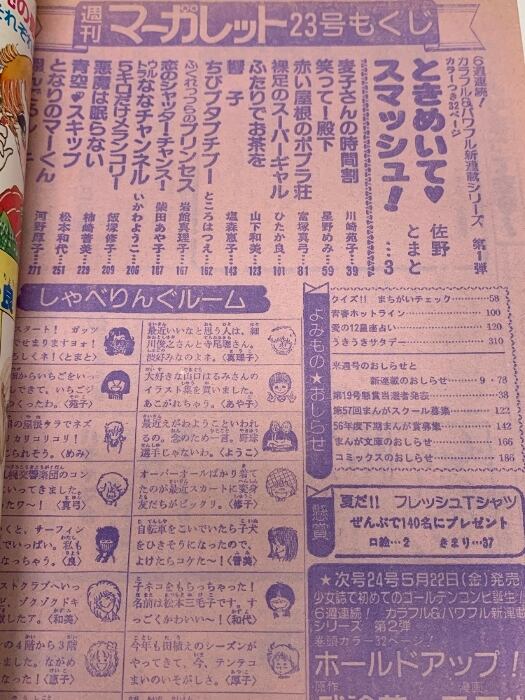 週刊 マーガレット 23号もくじ
6週連続!
カラフル&パワフル新連載シリーズ 第1弾
カラーつき32ページ
ときめいて♥
スマッシュ! 佐野とまと …3
麦子さんの時間割 川崎苑子 39
笑って一殿下 星野めみ 59
赤い屋根のポプラ荘 富塚真弓 81
裸足のスーパーギャル ひたか良 101
ふたりでお茶を 山下和美 123
響子 塩森恵子 143
ちびブタプチブー ところはつえ 162
ふくれっつらのプリンセス 岩館真理子 167
恋のシャッターチャンス! 柴田あや子 187
ななチャンネル いかわようこ 206
5キロだけメランコリー 飯塚修子 209
悪魔は眠らない 柿崎普美 229
青空★スキップ 松本和代 251
となりのマーくん 河野厚子 271
しゃべりんぐルーム
スタート! ガッツ
でせまりますョォ!
ろしくネ!〈とまと〉
最近いいなと思う人は、細
川俊之さんと寺尾聰さん。
渋好みなのよネ。〈真理子〉
からいちごをいっ
しできて。いちごジ
つくったわ。〈苑子〉
大好きな山口はるみさんの
イラスト集を買いました。
あこがれちゃう。〈あや子〉
の屋根ウラでネズ
カリコリコリ!
じられそう。〈めみ〉
最近えがわようこといわれ
るの。念のため一言。野球
選手じゃないわ。〈ようこ〉
札幌交響楽団のコン
いってきました。
たワ〜!〈真弓〉
オーバーオールばかり着て
たのが最近スカートに変身
友だちがビックリ。〈修子〉
くと、サーフィン
でいっぱい。私も
なっちゃう。〈良〉
自転車をこいでいたら子犬
をひきそうになったので、
よけたらコケた〜!〈普美〉
ストクラブへいっ
ど、ゾクゾクドキ
しァ。〈和美〉
子ネコをもらっちゃった!
名前は松本三毛子です。す
っごくかわいい〜!〈和代〉
の4階から3階
いました。ながめ
な。〈恵子〉
今年も田植えのシーズンが
やってきて、今、テンテコ
まいのいそがしさ。〈厚子〉
よみもの★おしらせ
クイズ!! まちがいチェック…58
青春ホットライン…100
愛の12星座占い…120
うきうきサタデー…310
来週号のおしらせと
新連載のおしらせ…9・78
第19号懸賞当選者発表…38
第57回まんがスクール募集…122
56年度下期まんが賞募集…142
まんが文庫のおしらせ…166
コミックスのおしらせ…186
懸賞
夏だ!! フレッシュTシャツ
ぜんぶで140名にプレゼント
口絵…2 きまり…37
★次号24号5月22日(金)発売
少女誌で初めてのゴールデンコンビ誕生!
6週連続! カラフル&パワフル新連載
シリーズ 第2弾
巻頭カラー32ページ!
ホールドアップ!
原作 漫画